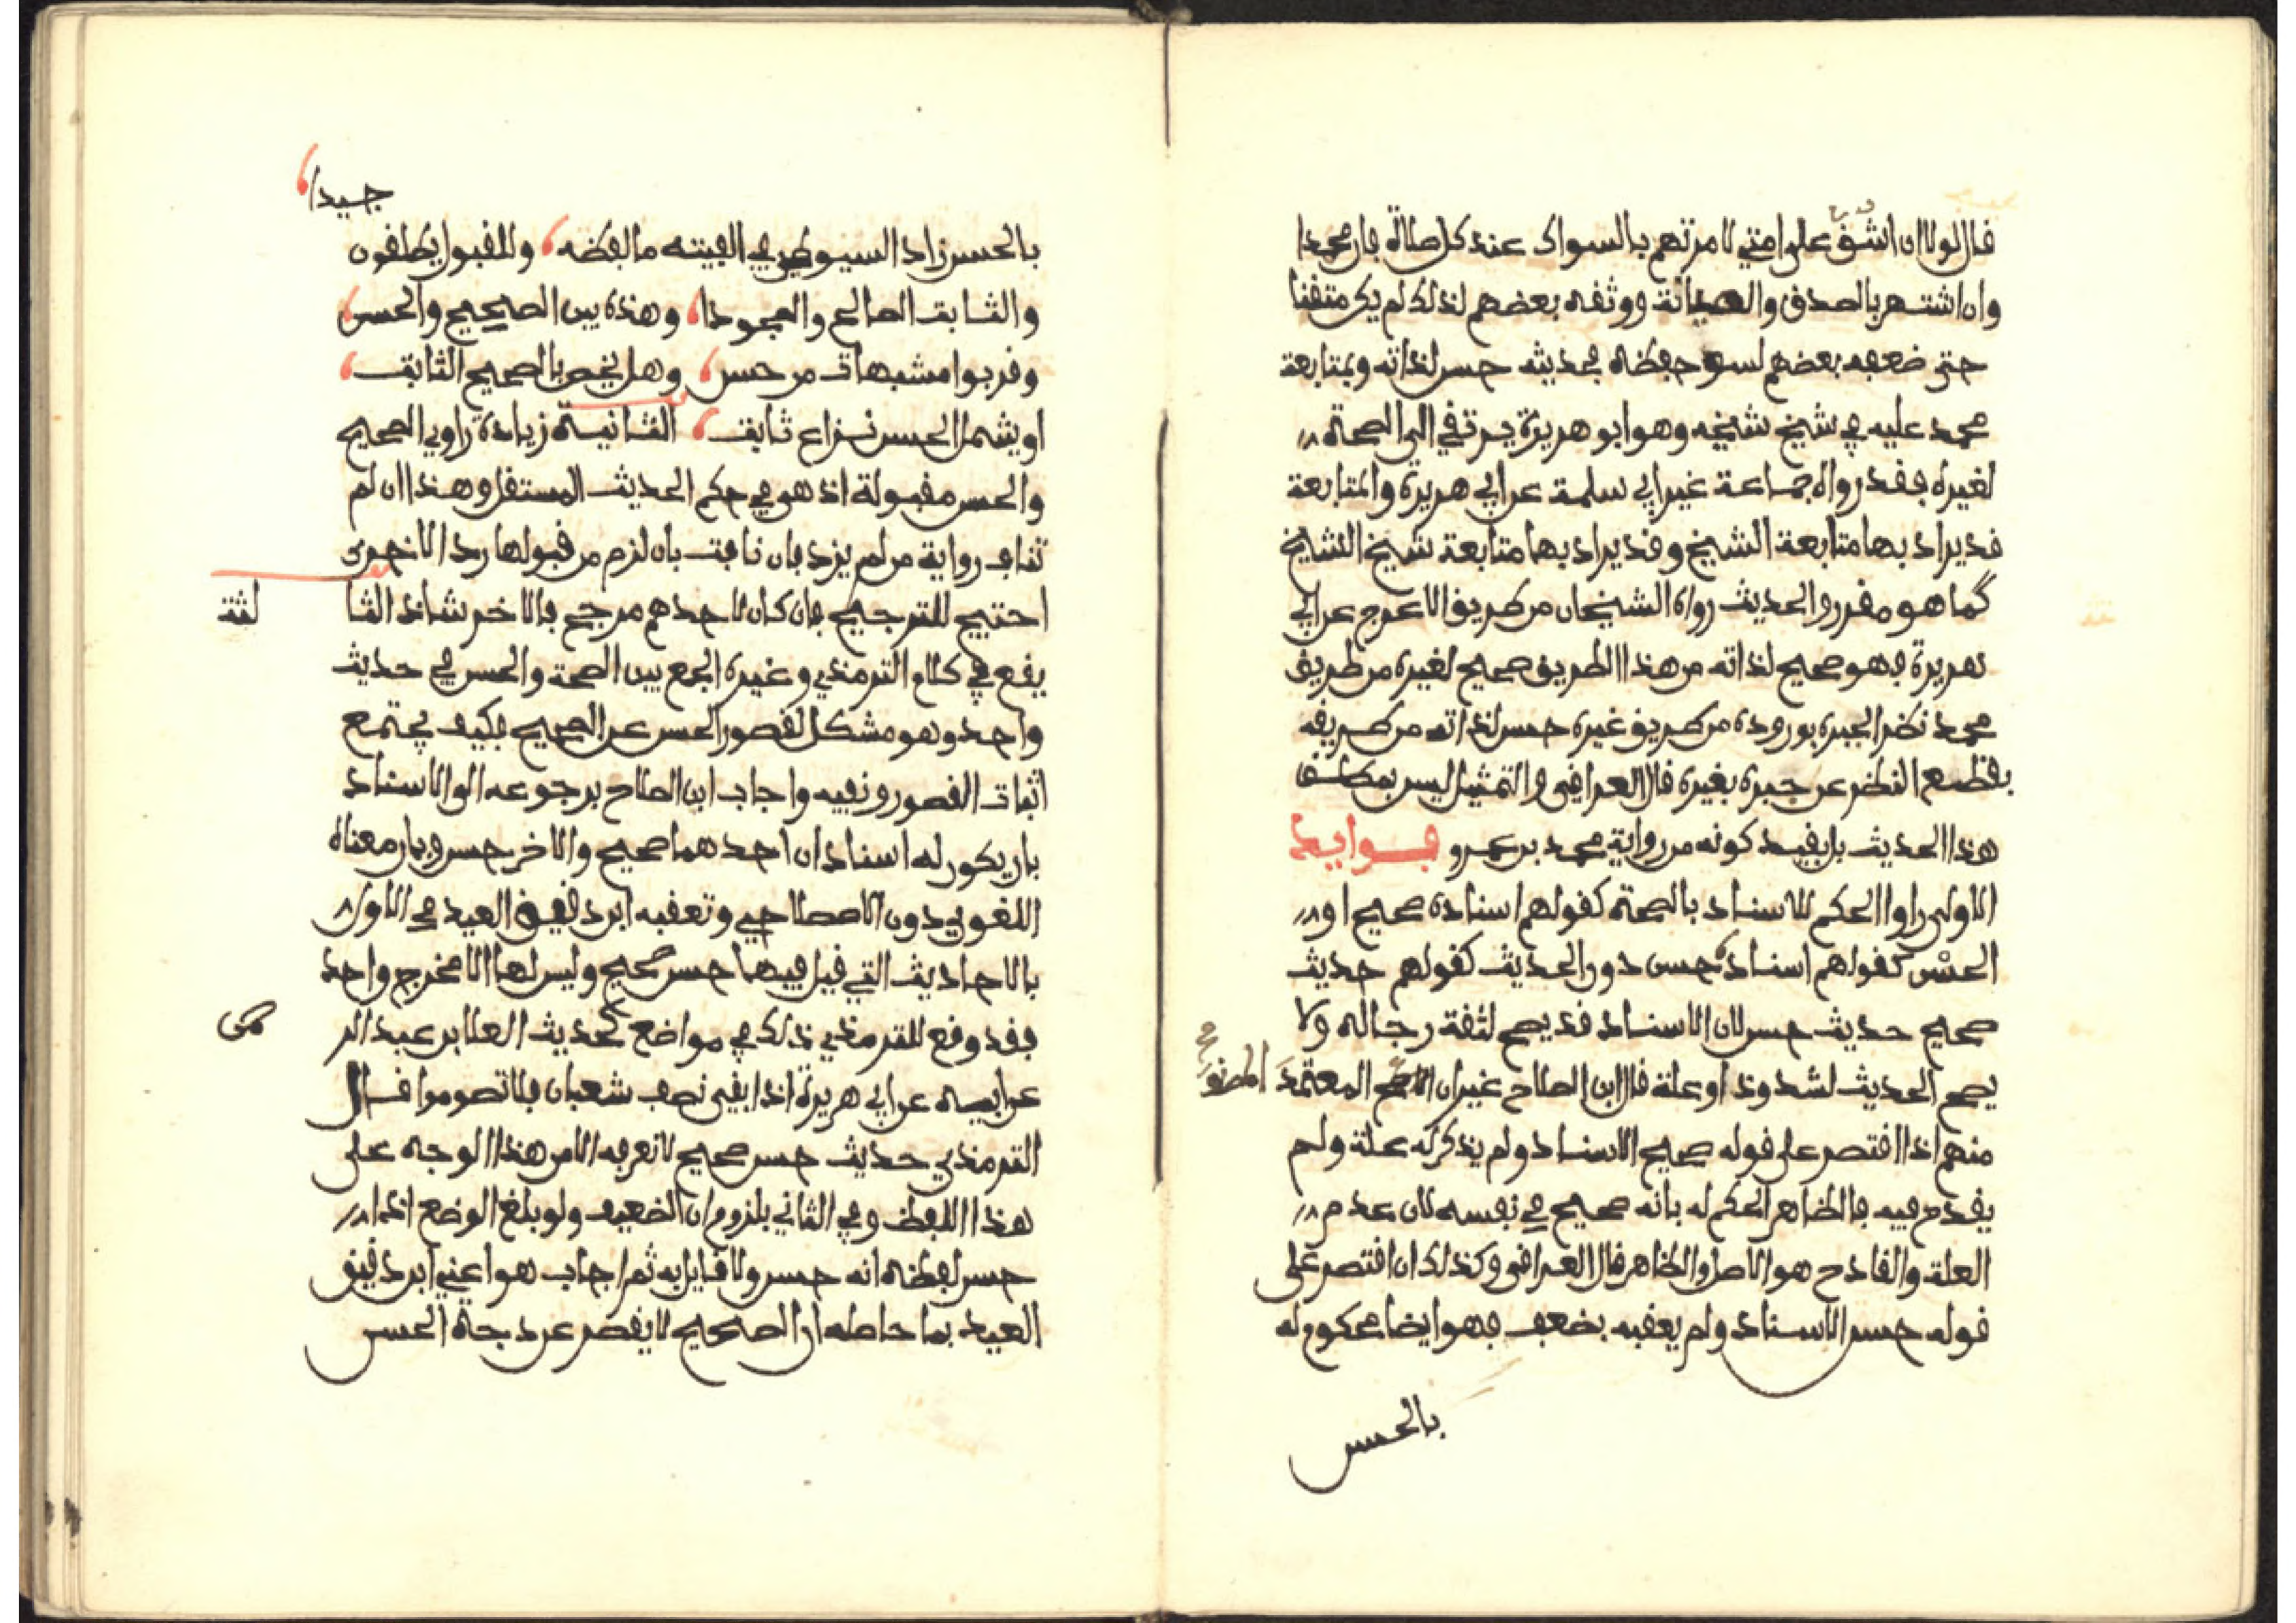 قال لولا ان اشق على امتي لامرتهم بالسواك عند كل صلاة فان محمدا
وان اشتهر بالصدق والصيانة ووثقه بعضهم لذلك لم يكن متقنا
حتى ضعفه بعضهم لسوء حفظه فحديثه حسن لذاته وبمتابعة
محمد عليه في شيخ شيخه وهو ابو هريرة يرتقي الى الصحة
لغيره فقد رواه جماعة غير ابي سلمة عن ابي هريرة والمتابعة
قد يراد بها متابعة الشيخ وقد يراد بها متابعة شيخ الشيخ
كما هو مقرر والحديث رواه الشيخان من طريق الاعرج عن ابي
هريرة فهو صحيح لذاته من هذا الطريق صحيح لغيره من طريق
محمد نظرا لجبره بوروده من طريق غيره حسن لذاته من طريقه
بقطع النظر عن جبره بغيره قال العراقي والتمثيل ليس بمطلق
هذا الحديث بل بقيد كونه من رواية محمد بن عمرو فوايد
الاولى راوا الحكم للاسناد بالصحة كقولهم اسناده صحيح او
الحسن كقولهم اسناده حسن دون الحديث كقولهم حديث
صحيح حديث حسن لان الاسناد قد يصح لثقة رجاله ولا
يصح الحديث لشذوذ او علة قال ابن الصلاح غير ان المعتمد
المصنفين
منهم اذا اقتصر على قوله صحيح الاسناد ولم يذكر له علة ولم
يقدح فيه فالظاهر الحكم له بانه صحيح في نفسه لان عدم
العلة والقادح هو الاصل والظاهر قال العراقي وكذلك ان اقتصر على
قوله حسن الاسناد ولم يعقبه بضعف فهو ايضا محكوم له
بالحسن
جيدا
بالحسن زاد السيوطي في الفيته ما لفظه وللقبول يطلقون
والثابت الصالح والمجودا وهذه بين الصحيح والحسن
وقربوا مشبهات من حسن وهل يخص بالصحيح الثابت
او يشمل الحسن نزاع ثابت الثانية زيادة راوي الصحيح
والحسن مقبولة اذ هو في حكم الحديث المستقل وهذا ان لم
تناف رواية من لم يزد فان نافت بان لزم من قبولها رد الاخرى
احتيج للترجيح فان كان لاحدهم مرجح فالاخر شاذ الثا
لثة
يقع في كلام الترمذي وغيره الجمع بين الصحة والحسن في حديث
واحد وهو مشكل لقصور الحسن عن الصحيح فكيف يجتمع
اثبات القصور ونفيه واجاب ابن الصلاح برجوعه الى الاسناد
بان يكون له اسنادان احدهما صحيح والاخر حسن وبان معناه
اللغوي دون الاصطلاحي وتعقبه ابن دقيق العيد في الاول
بالاحاديث التي قيل فيها حسن صحيح وليس لها الا مخرج واحد
فقد وقع للترمذي ذلك في مواضع كحديث العلا بن عبد الر
حمن
عن ابيه عن ابي هريرة اذا بقي نصف شعبان فلا تصوموا قال
الترمذي حديث حسن صحيح لا نعرفه الا من هذا الوجه على
هذا اللفظ وفي الثاني بلزوم ان الضعيف ولو بلغ الوضع اذا
حسن لفظه انه حسن ولا قايل به ثم اجاب هو اعني ابن دقيق
العيد بما حاصله ان الصحيح لا يقصر عن درجة الحسن